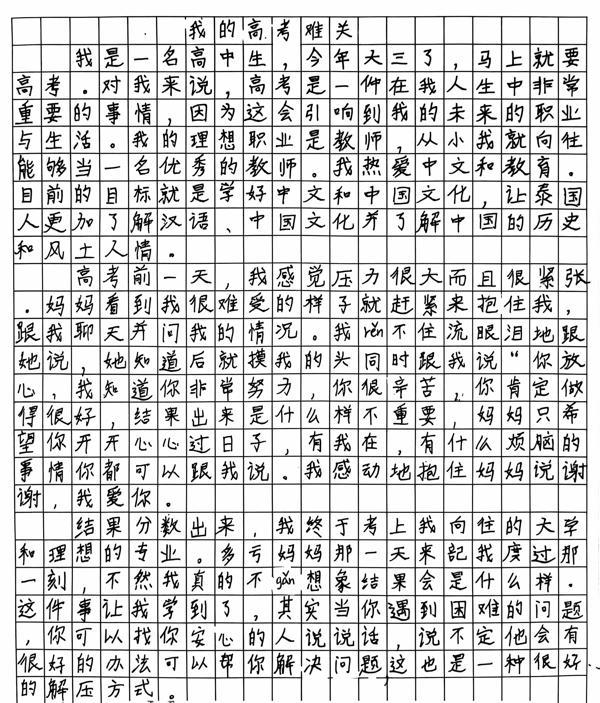 我的高考难关
我是一名高中生，今年大三了，马上就要
高考。对我来说，高考是一件在我人生中非常
重要的事情，因为这会引响到我的未来的职业
与生活。我的理想职业是教师，从小我就向往
能够当一名优秀的教师。我热爱中文和教育。
目前的目标就是学好中文和中国文化，让泰国
人更加了解汉语、中国文化并了解中国的历史
和风土人情。
高考前一天，我感觉压力很大而且很紧张
。妈妈看到我很难受的样子就赶紧来抱住我，
跟我聊天并问我的情况。我rěn不住流眼泪地跟
她说，她知道后就摸我的头同时跟我说“你放
心，我知道你非常努力，你很辛苦，你肯定做
得很好，结果出来是什么样不重要，妈妈只希
望你开开心心过日子，有我在，有什么烦脑的
事情你都可以跟我说。我感动地抱住妈妈说谢
谢，我爱你。
结果分数出来，我终于考上我向住的大学
和理想的专业。多亏妈妈那一天来記我度过那
一刻，不然我真的不gǎn想象结果会是什么样。
这件事让我学到了，其实当你遇到困难的问题
，你可以找你安心的人说说话，说不定他会有
很好的办法可以帮你解决问题这也是一种很好
的解压方式。